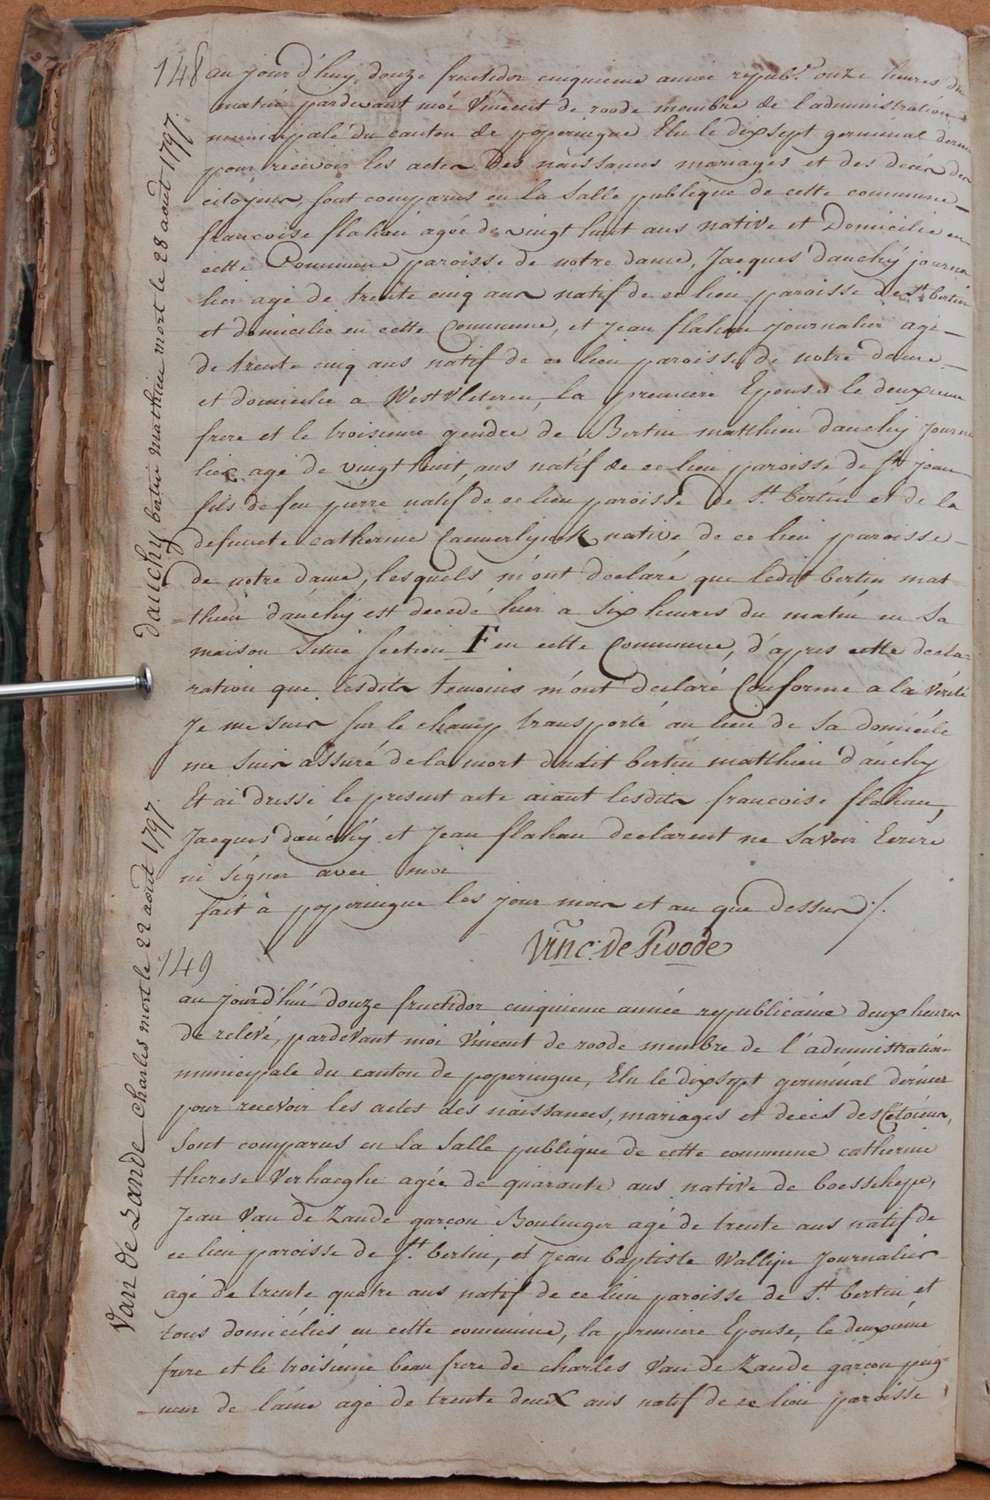 148 au jour d'huy douze fructidor cinquieme année republ. onze heures du
matin pardevant moi Vincent de roode membre de l'administration
municipale du canton de poperingue Elu le dixsept germinal dernier
pour recevoir les actes des naissances mariages et des decés des
citoyens, sont comparus en la Salle publique de cette commune
francoise flahau agée de vingt huit ans native et Domicilié en
cette Commune paroisse de notre dame, Jacques dauchÿ journa
lier agé de trente cinq ans natif de ce lieu paroisse de St bertin
et domicilié en cette Commune, et jean flahau journalier agé
de trente cinq ans natif de ce lieu paroisse de notre dame
et domicilié a West Vleteren, la premiere Epouse le deuxieme
frere et le troisieme gendre de Bertin matthieu dauchÿ journa
lier agé de vingt huit ans natif de ce lieu paroisse de St jean
fils de feu pierre natif de ce lieu paroisse de St bertin et de la
defuncte catherine Cauwerlynck native de ce lieu paroisse
de notre dame, lesquels m'ont declaré que ledit bertin mat
=thieu dáuchÿ est decedé hier a six heures du matin en Sa
maison Situé Section F en cette Commune, d'apres cette decla-
ration que lesdits temoins m'ont declaré Conforme a la vérité
Je me suis sur le champ transporté au lieu de Sa domicile
me suis assuré de la mort dudit bertin matthieu d'áuchy
Et ai dressé le present acte aiant lesdits francoise flahau,
Jacques dáuchÿ et Jean flahau declarent ne Savoir Ecrire
ni Signer avec moi
fait à poperingue les jour mois et an que dessus ./.
Vinc: de Roode
dauchy bertin mathieu mort le 28 août 1797.
149
au jourd'hui douze fructidor cinquieme année republicaine deux heures
de relevé, pardevant moi Vincent de roode membre de l'administration
municipale du canton de poperingue, Elu le dixsept germinal dernier
pour recevoir les actes des naissances, mariages et decés des Citoiens,
Sont comparus en la Salle publique de cette commune catherine
therese Verhaeghe agée de quarante ans native de boesschepe,
Jean Van de Zande garçon Boulenger agé de trente ans natif de
ce lieu paroisse de St. bertin, et Jean baptiste Wallyn Journalier
agé de trente quatre ans natif de ce lieu paroisse de St bertin et
tous domiciliés en cette commune, la premiere Epouse, le deuxieme
frere et le troisieme beau frere de charles Van de Zande garçon peig-
neur de laine agé de trente deux ans natif de ce lieu paroisse
Van de Zande Charles mort le 22 août 1797.